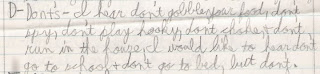 D-Don'ts-I hear don't gobble your food, don't
spy, don't play hooky, don't cheat, don't
run in the house, I would like to hear don't
go to school + don't go to bed, but don't.